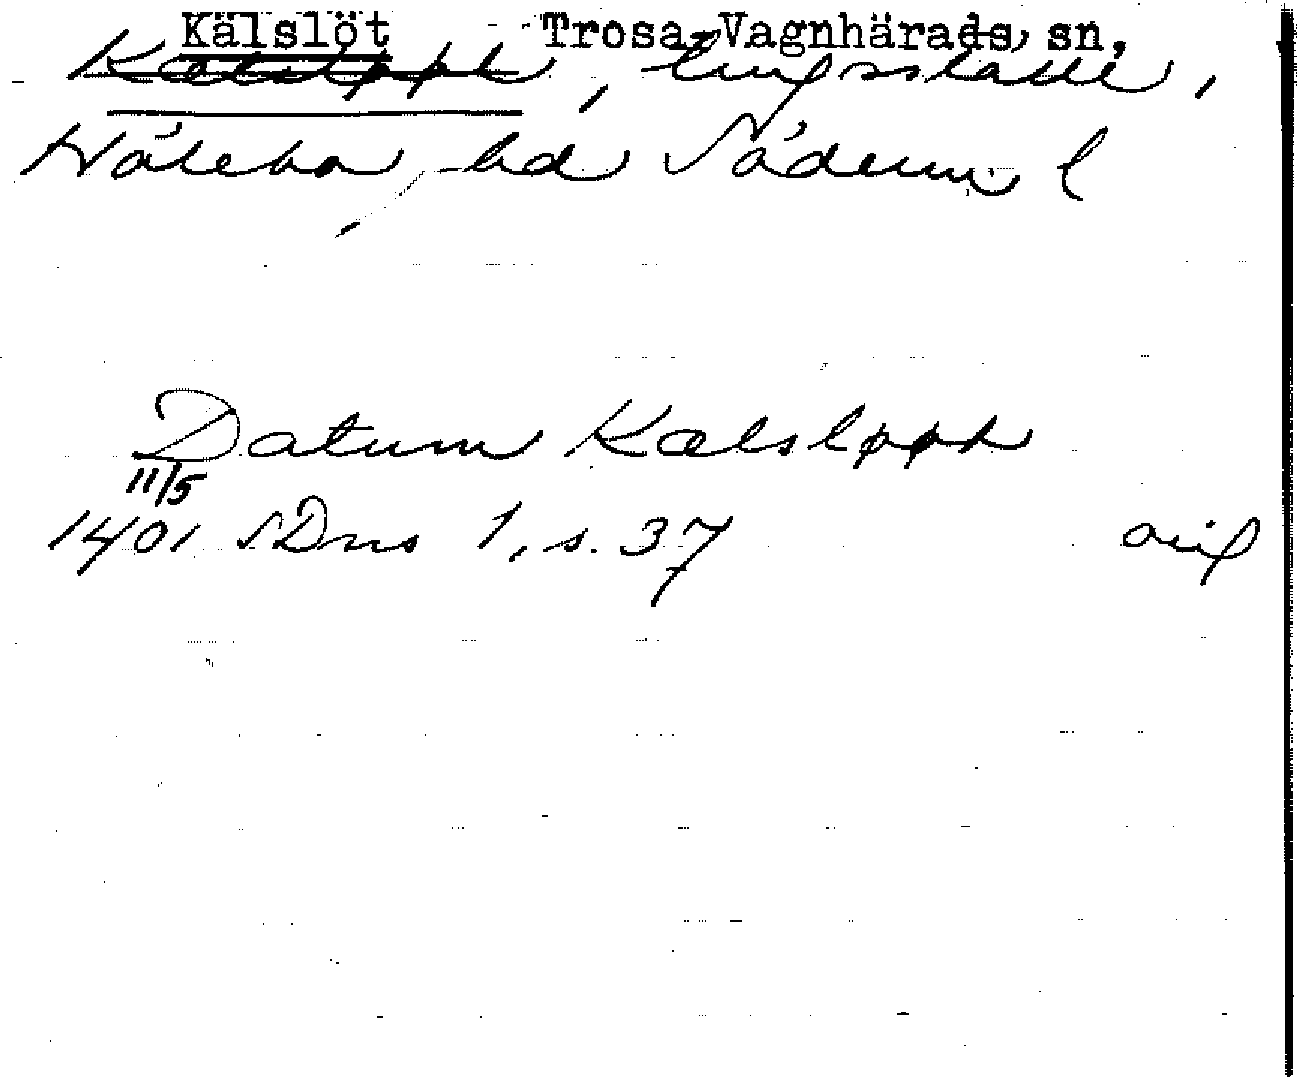 Kälslöt Trosa-Vagnhärads sn.
Kælsløøt, tingsställe,
Hölebo hd Söderm l
Datum Kælsløøt
11/5
1401 SDns 1, s. 37 orig